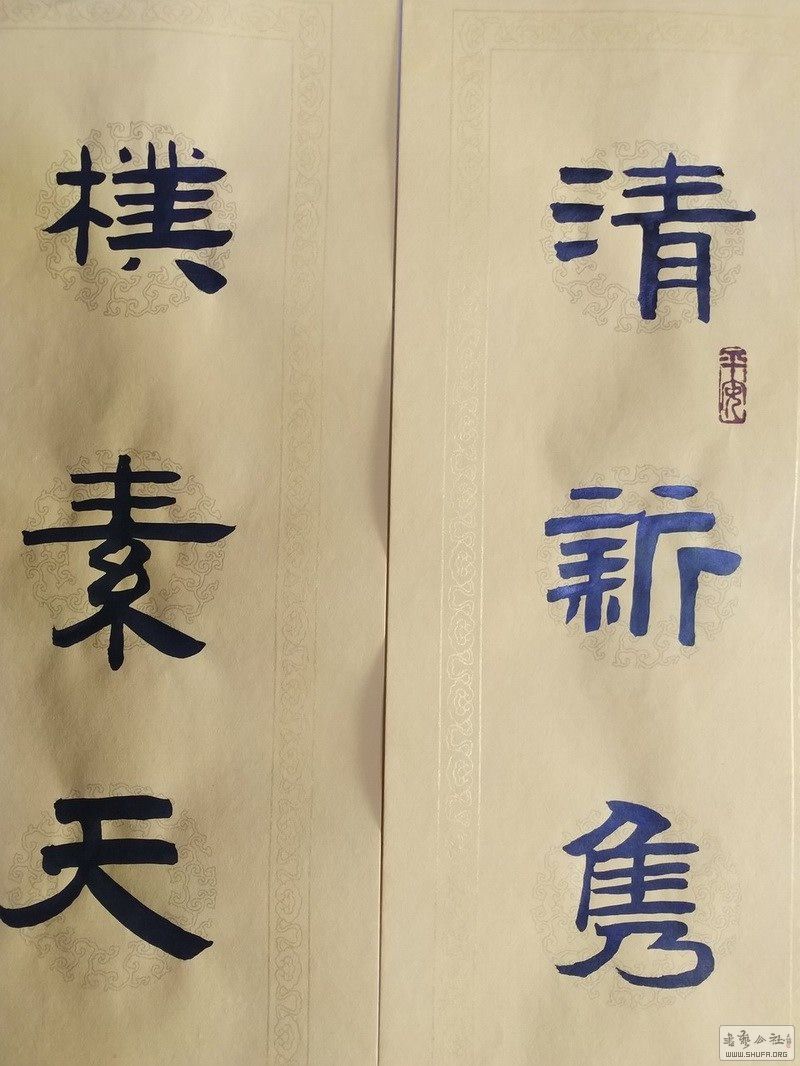 清新雋
平安
樸素天
書藝公社
WWW.SHUFA.ORG